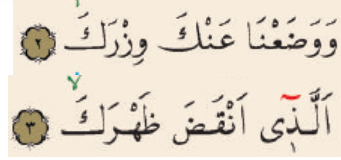 وَوَضَعْنَا عَنْكَ وِزْرَكَۙ ٢
اَلَّذ۪ٓى اَنْقَضَ ظَهْرَكَۙ ٣